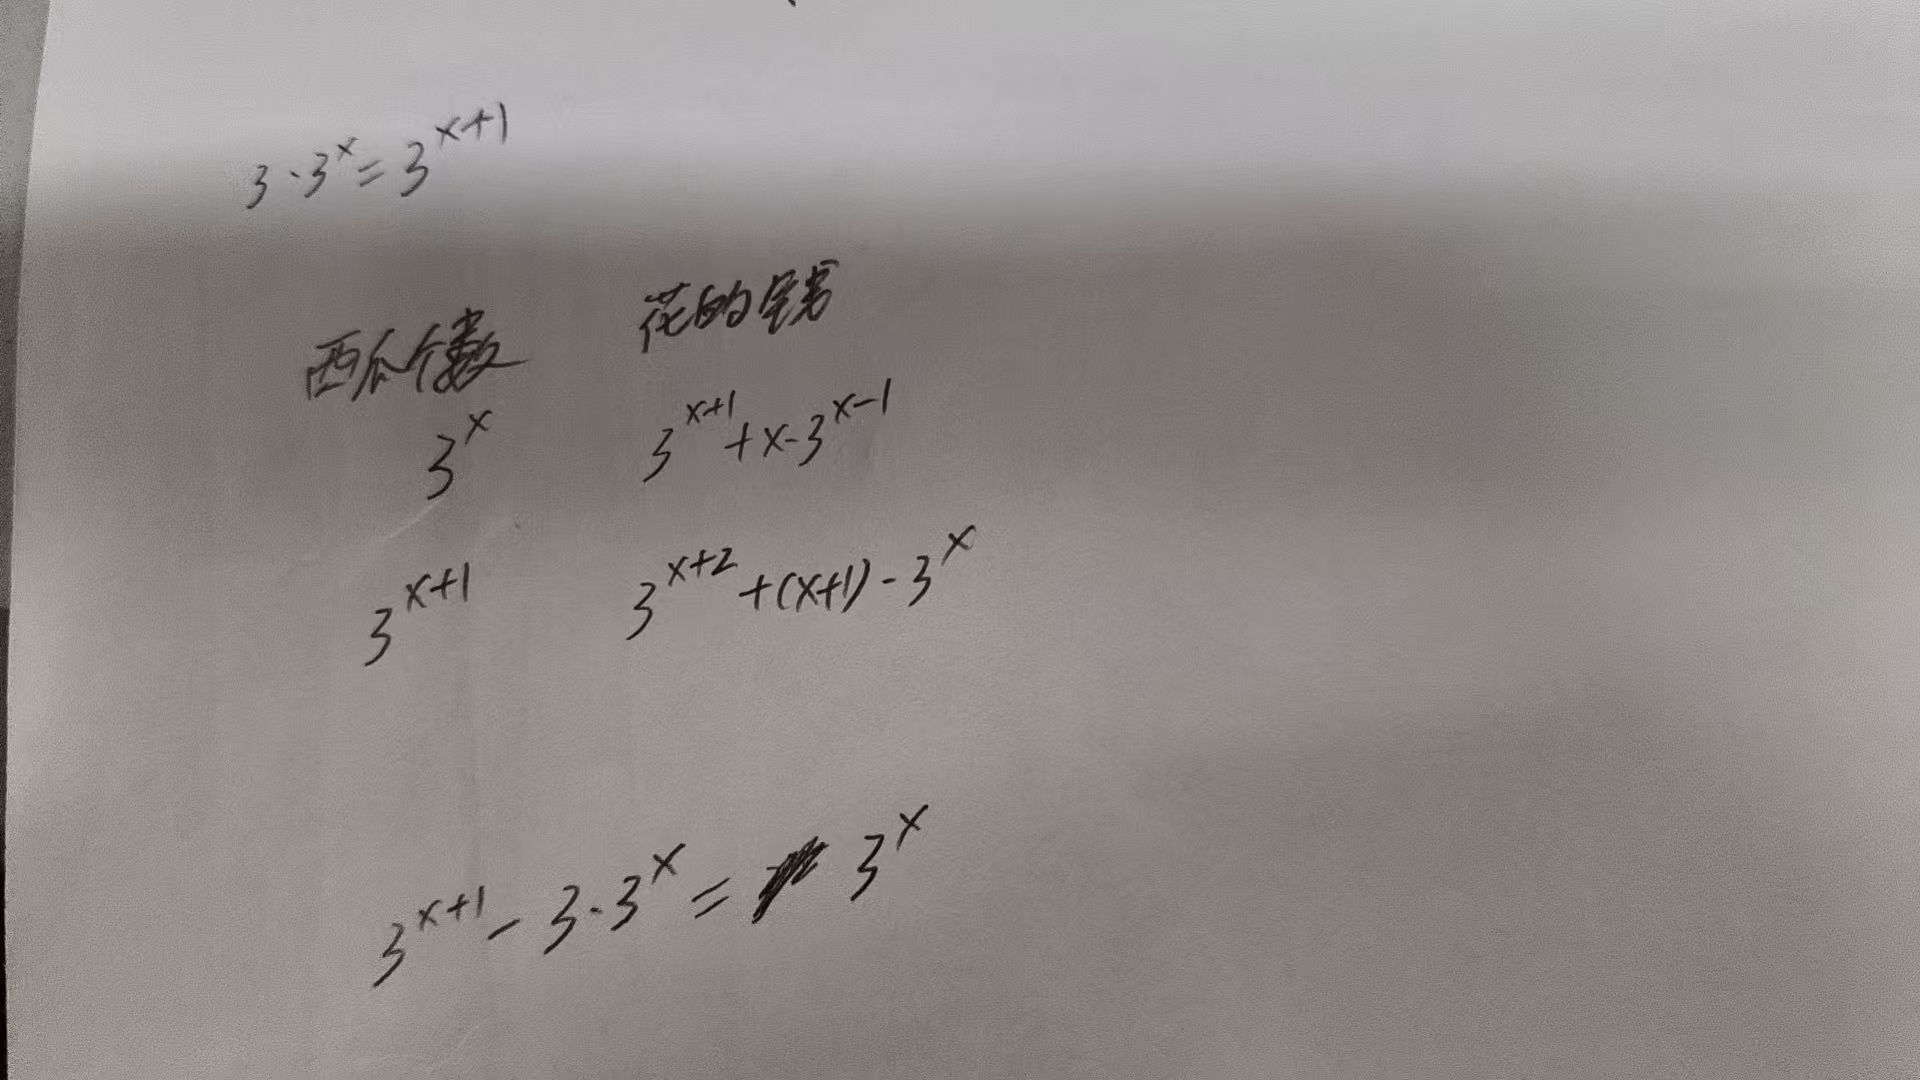 3·3^x=3^{x+1}
西瓜个数 花的钱
3^x 3^{x+1}+x·3^{x-1}
3^{x+1} 3^{x+2}+(x+1)·3^x
3^{x+1}-3·3^x= 3^x